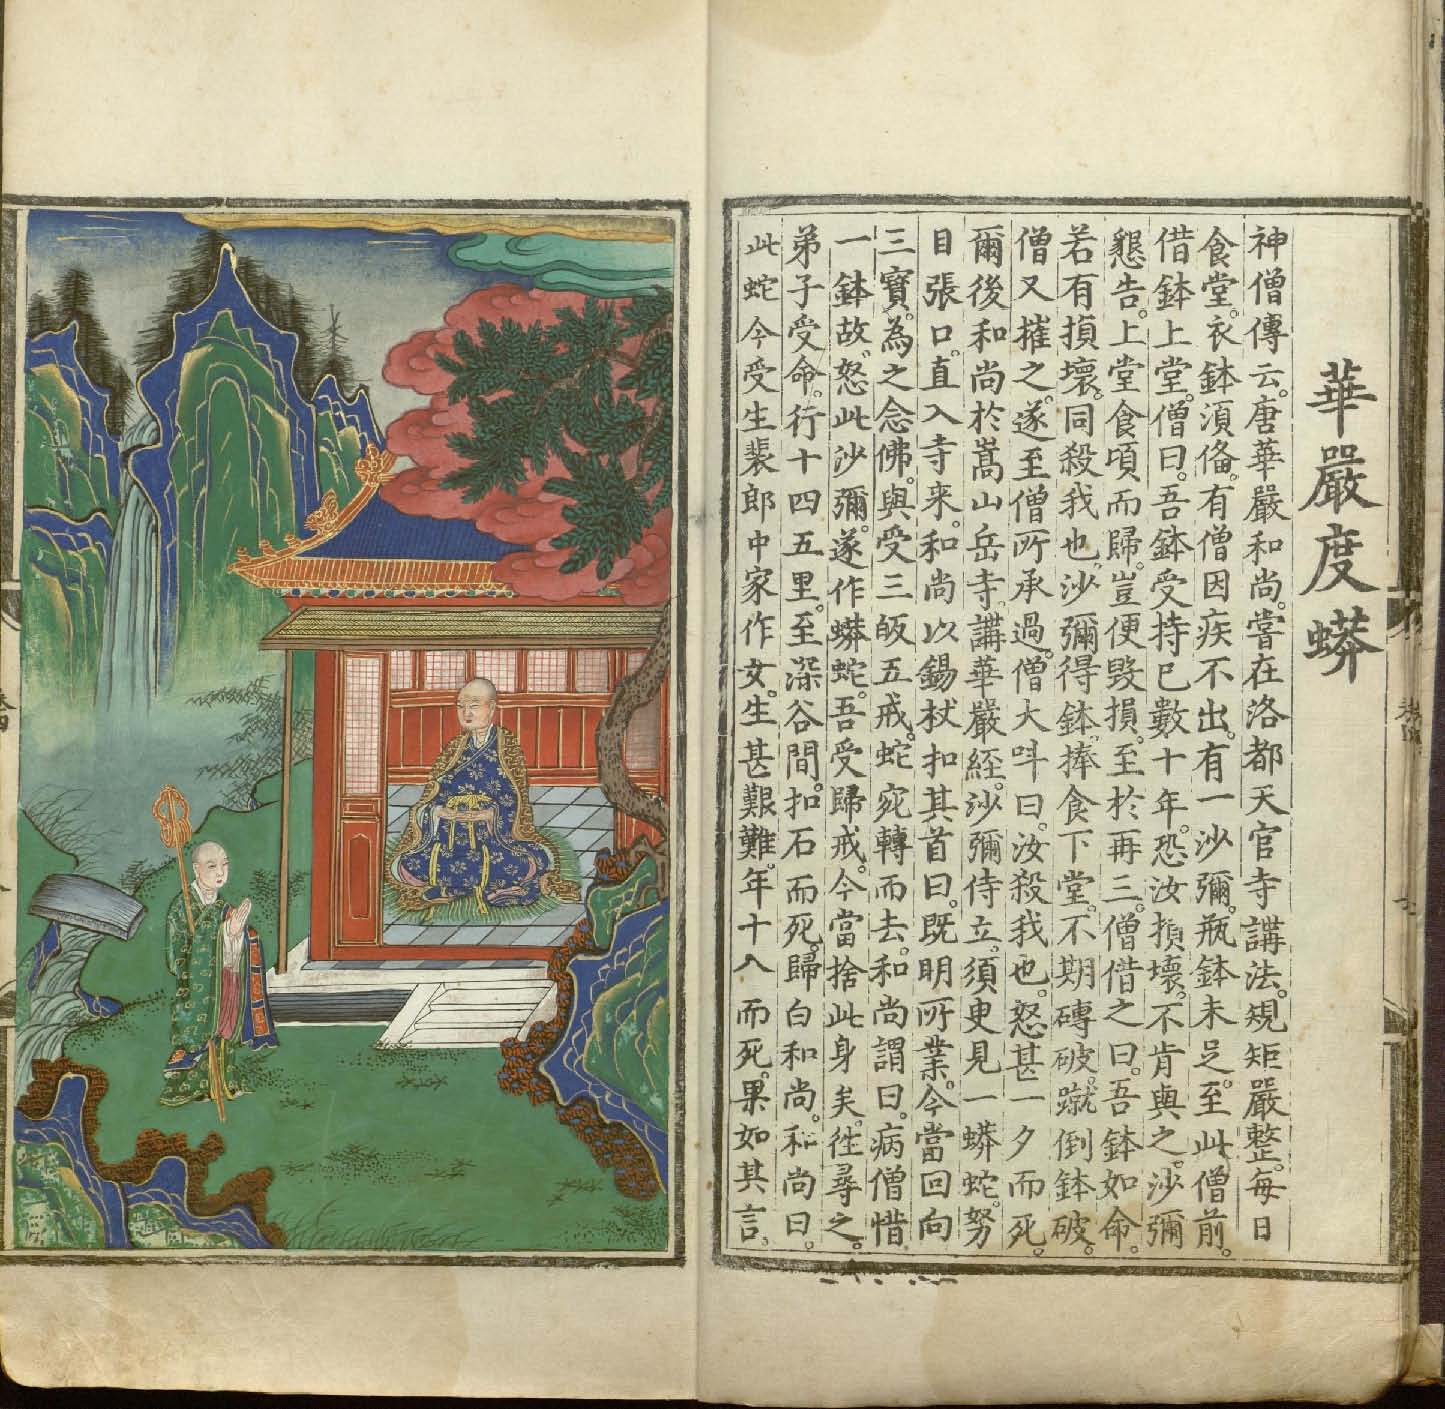 華嚴度蟒
神僧傳云。唐華嚴和尚。嘗在洛都天官寺講法。規矩嚴整。每日
食堂。衣鉢湏俻。有僧因疾不出。有一沙彌。瓶鉢未足。至此僧前。
借鉢上堂。僧曰。吾鉢受持已數十年。恐汝損壞。不肯與之。沙彌
懇告。上堂食頃而歸。豈便毀損。至於再三。僧借之曰。吾鉢如命。
若有損壞。同殺我也。沙彌得鉢。捧食下堂。不期磚破。蹴倒鉢破。
僧又摧之。遂至僧所承過。僧大呌曰。汝殺我也。怒甚一夕而死。
爾後和尚於嵩山岳寺。講華嚴經。沙彌侍立。須臾見一蟒蛇。努
目張口。直入寺来。和尚以錫杖扣其首曰。既明所業。今當回向
三寶。為之念佛。與受三皈五戒。蛇宛轉而去。和尚謂曰。病僧惜
一鉢故。怒此沙彌。遂作蟒蛇。吾受歸戒。今當捨此身矣。徃尋之。
弟子受命。行十四五里。至深谷間。扣石而死。歸白和尚。和尚曰。
此蛇今受生裴郎中家作女。生甚艱難。年十八而死。果如其言。